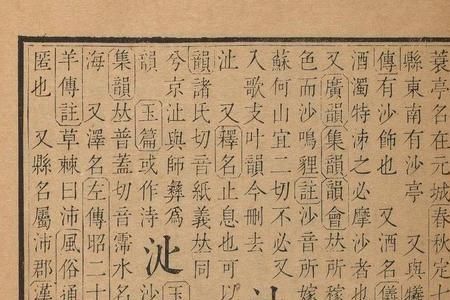 亭名在元城春秋定
縣東南有沙亭 又與
傳有沙飾也 又酒名儀
酒濁特泲之必摩沙者也
又廣韻集韻韻會𠀤所稼
色而沙鳴貍註沙音所嫁
蘇何山宜二切不必又
入歌支叶韻今刪去
沚 又釋名止息也可以
韻諸氏切音紙義𠀤同
兮京沚與師彝爲 玉
韻 玉篇或作洔
集韻𠀤普蓋切音霈水名
海 又澤名左傳昭二十
羊傳註草棘曰沛風俗通
匿也 又縣名屬沛郡漢